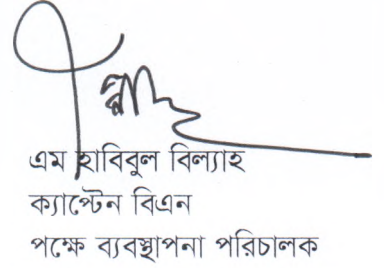 এম হাবিবুল বিল্যাহ
ক্যাপ্টেন বিএন
পক্ষে ব্যবস্থাপনা পরিচালক